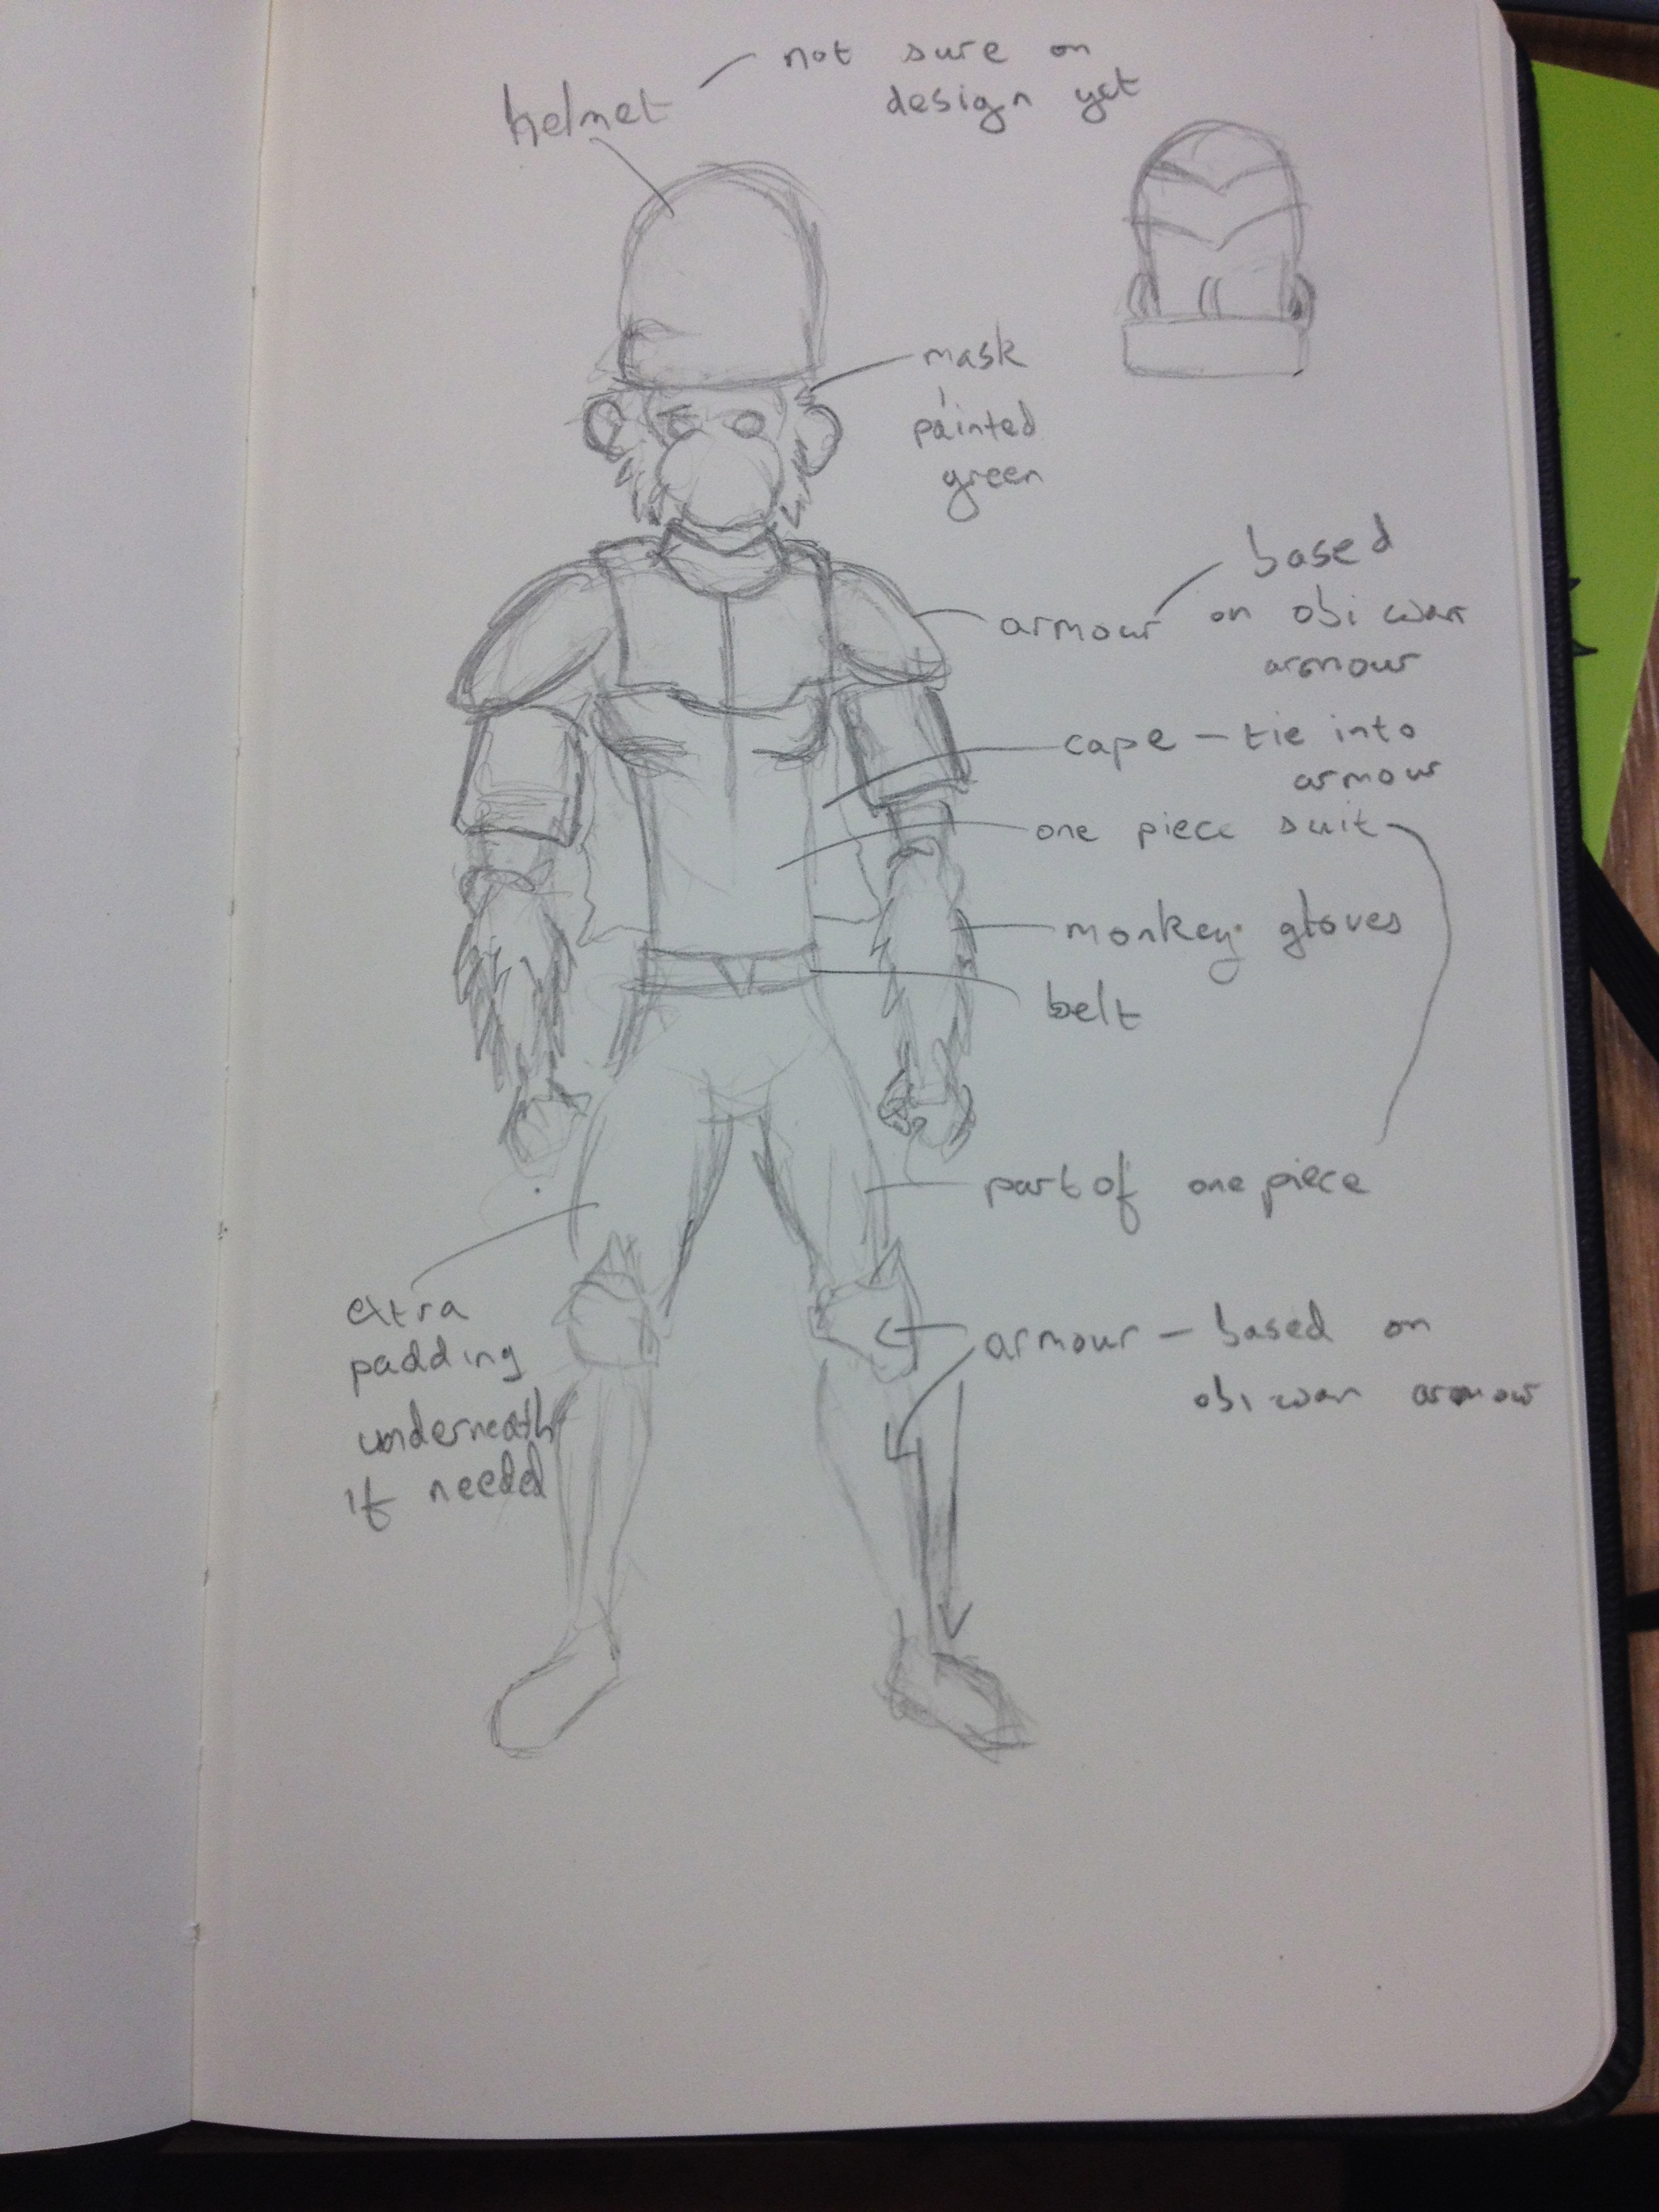 not sure on
design yet
helmet
mask
painted
green
armour
based
on obi wan
armour
cape - tie into
armour
one piece suit
monkey gloves
belt
part of one piece
extra
padding
underneath
if needed
armour - based on
obi wan armour